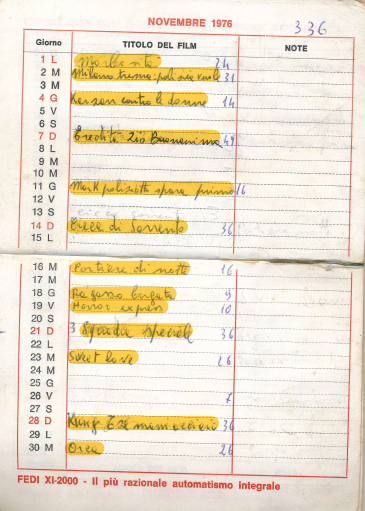 NOVEMBRE 1976 336
Giorno TITOLO DEL FILM NOTE
1 L 24
2 M Milano trema: polizia vuole 31
3 M
4 G Karzan contro le donne 14
5 V
6 S
7 D Eredità zio Buonanima 49
8 L
9 M
10 M
11 G Mark poliziotto spara primo 16
12 V
13 S
14 D di Sorrento 36
15 L
16 M Portiere di notte 16
17 M
18 G Ragazzo 9
19 V Horror express 10
20 S
21 D 3 Squadra speciale 36
22 L
23 M Sweet love 26
24 M
25 G
26 V 7
27 S
28 D Kung 36
29 L
30 M Orca 26
FEDI XI-2000 - Il più razionale automatismo integrale